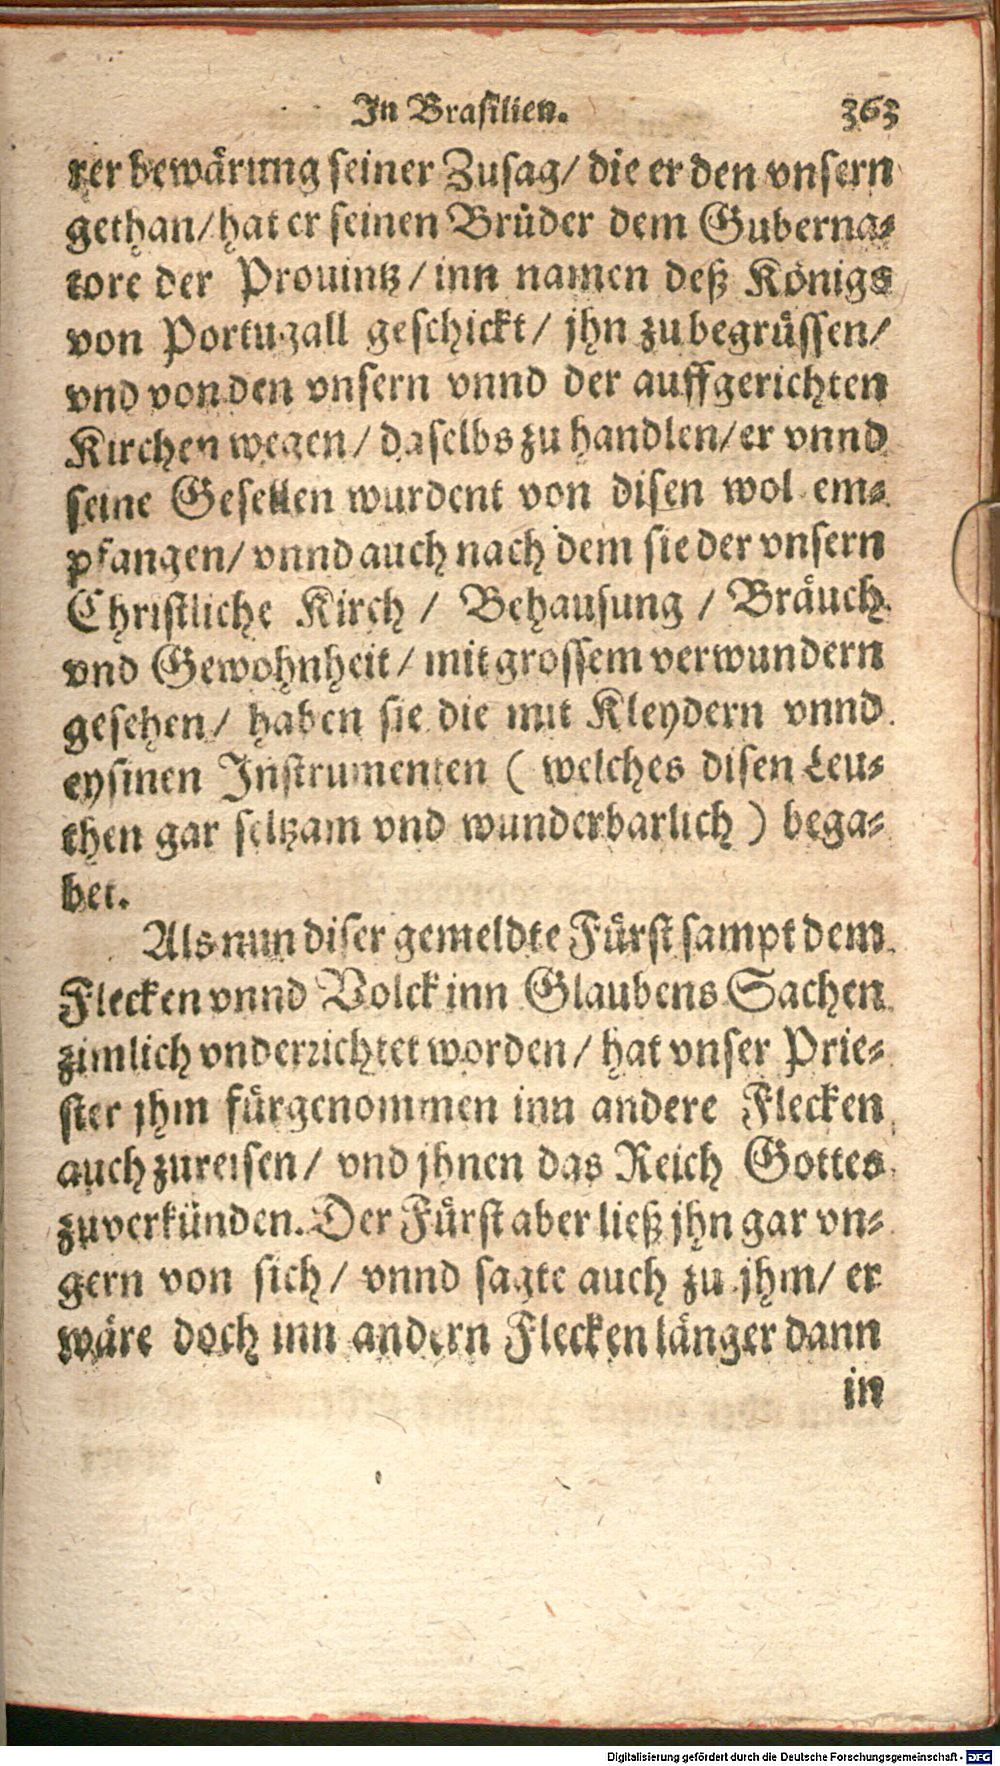 In Brasilien. 363
rer bewärung seiner Zusag/ die er den vnsern
gethan/ hat er seinen Brüder dem Guberna-
tore der Prouintz/ inn namen deß Königs
von Portugall geschickt/ jhn zubegrüssen/
vnd von den vnsern vnnd der auffgerichten
Kirchen wegen/ daselbs zu handlen/ er vnnd
seine Gesellen wurdent von disen wol em-
pfangen/ vnnd auch nach dem sie der vnsern
Christliche Kirch / Behausung / Bräuch
vnd Gewohnheit/ mit grossem verwundern
gesehen/ haben sie die mit Kleydern vnnd
eysinen Instrumenten ( welches disen Leu-
then gar seltzam vnd wunderbarlich ) bega-
bet.
Als nun diser gemeldte Fürst sampt dem
Flecken vnnd Volck inn Glaubens Sachen
zimlich vnderrichtet worden/ hat vnser Prie-
ster jhm fürgenommen inn andere Flecken
auch zureisen/ vnd jhnen das Reich Gottes
zuverkünden. Der Fürst aber ließ jhn gar vn-
gern von sich/ vnnd sagte auch zu jhm/ er
wäre doch inn andern Flecken länger dann
in
Digitalisierung gefördert durch die Deutsche Forschungsgemeinschaft - DFG